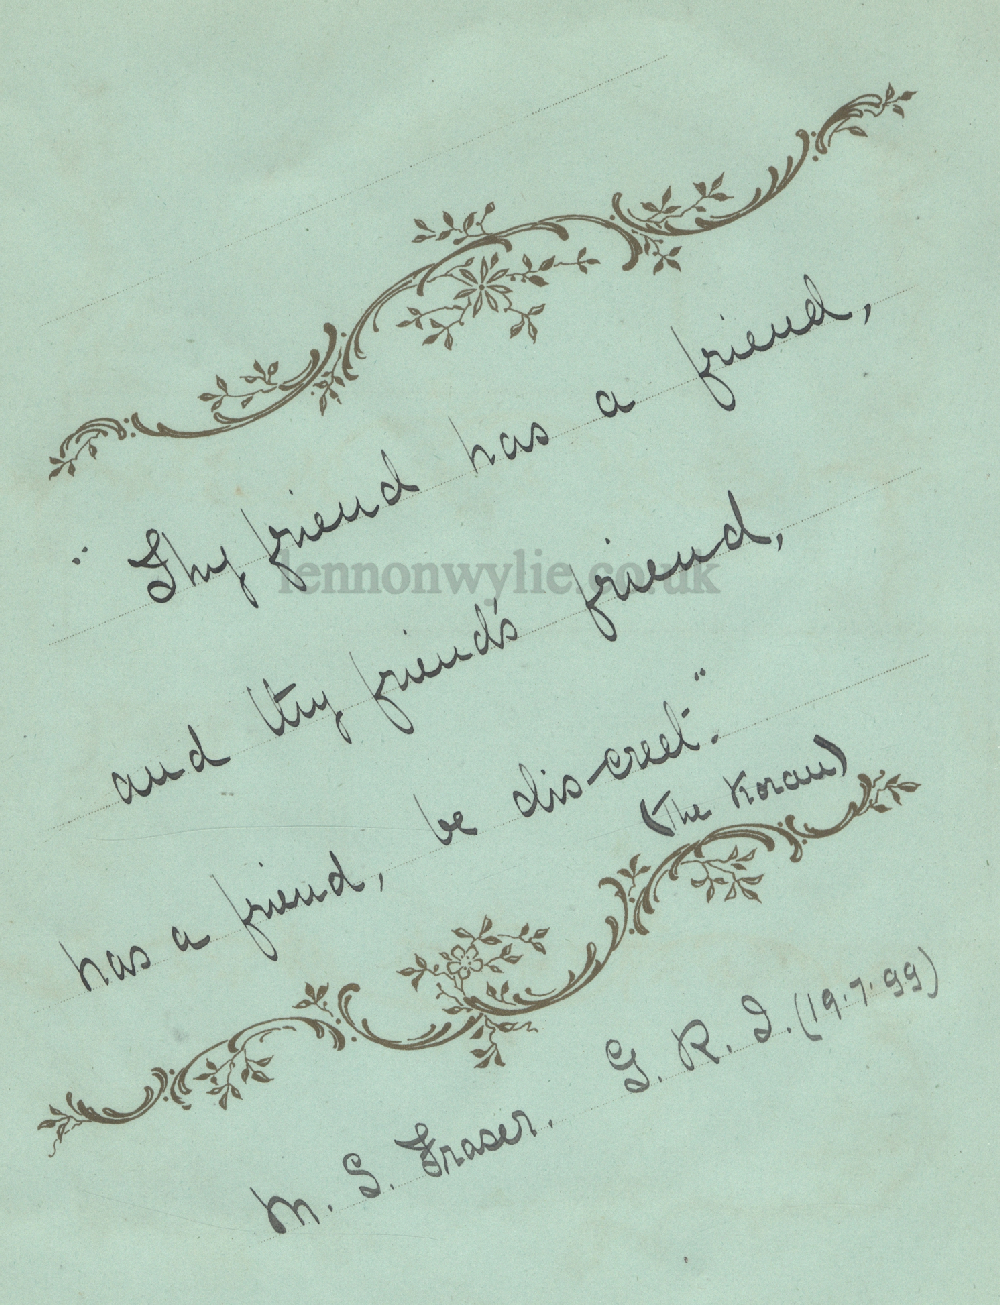 "Thy friend has a friend,
and thy friend's friend,
has a friend, be discreet."
(The Koran)
M. S. Fraser. G. R. I. (19.7.99)
lennonwylie.co.uk